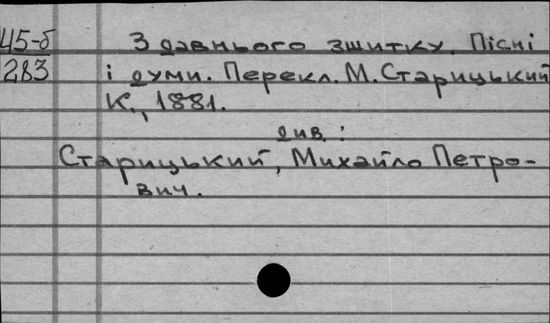 45-б З давнього зшитку. Пісні
283 і думи. Перекл. М. Старицький
К., 1881.
див.:
Старицький, Михайло Петро-
вич.